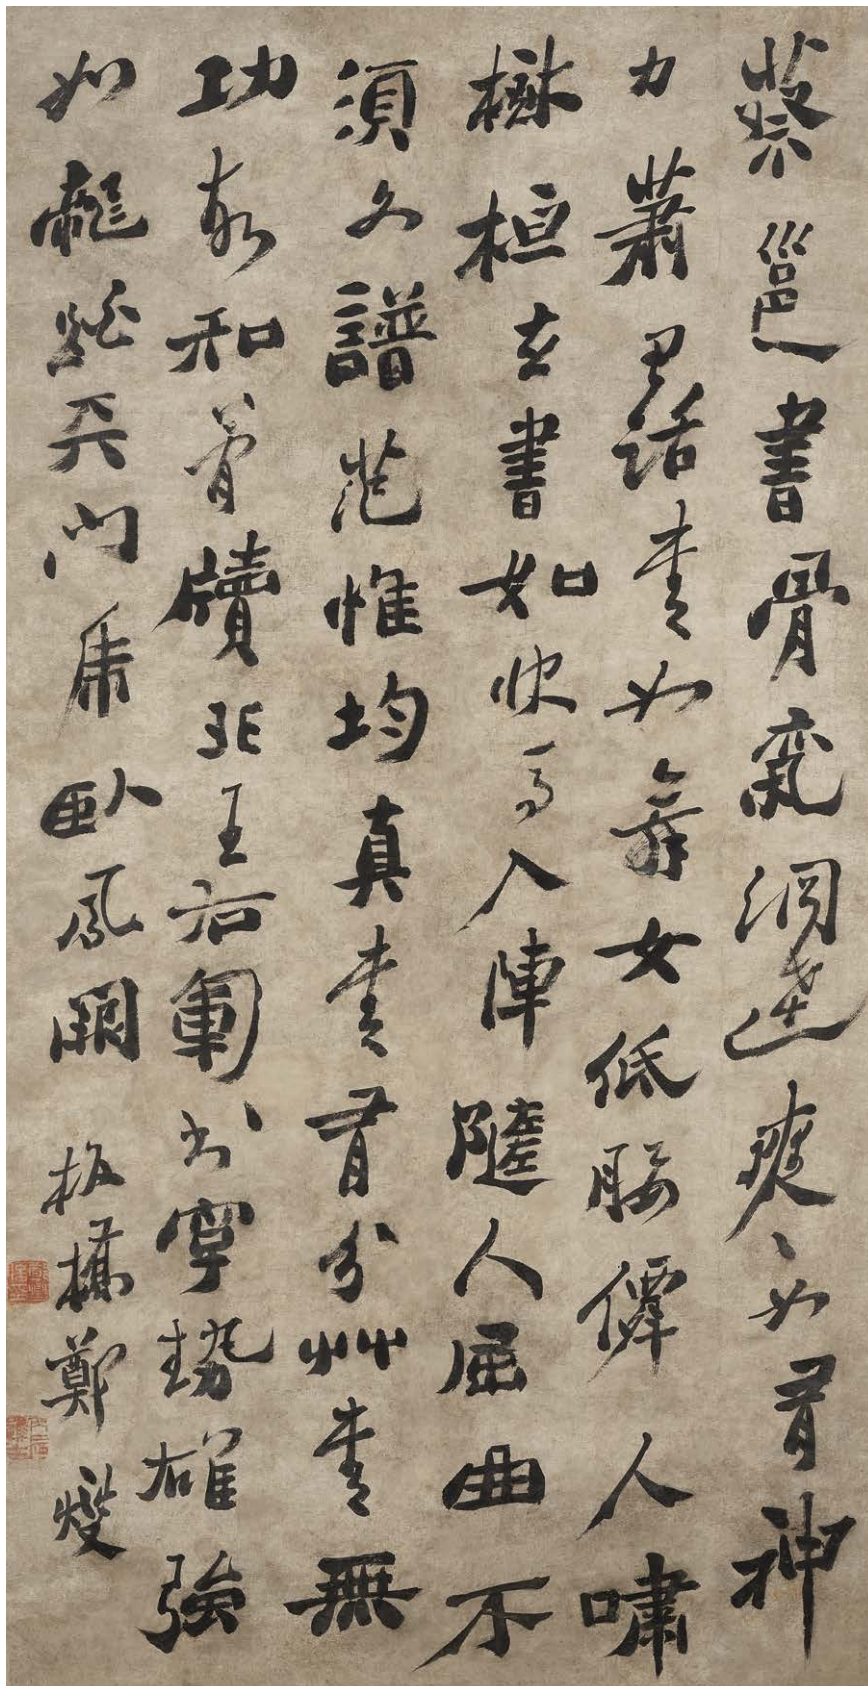 蔡邕書骨氣洞達爽爽如有神
力蕭思話書如舞女低腰僊人嘯
樹桓玄書如快馬入陣隨人屈曲不
須文譜范惟均真書有分艸書無
功故知簡牘非王右軍書字勢雄強
如龍跳天門虎臥鳳閣 板橋鄭燮